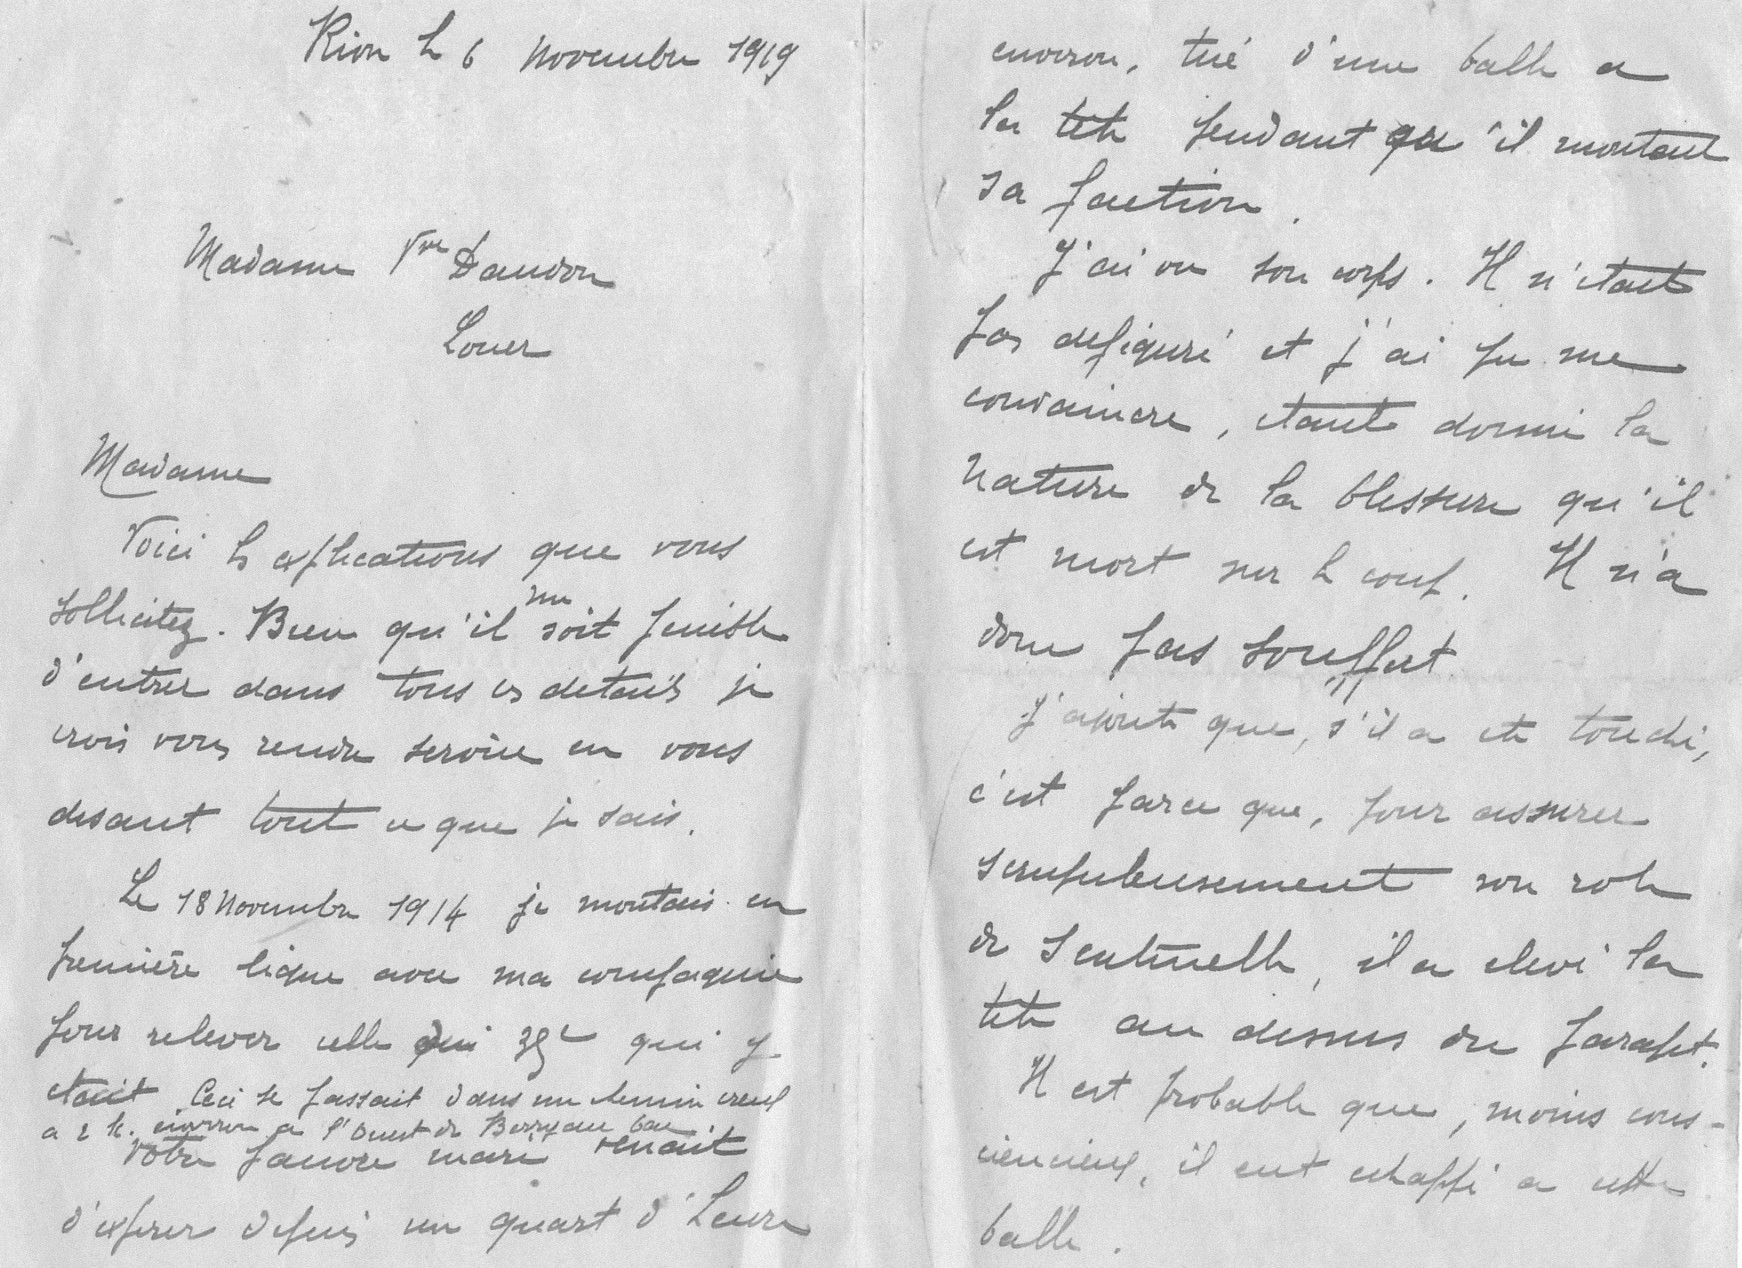 Rion le 6 Novembre 1919
Madame Vve Daudon
Louer
Madame
Voici les explications que vous
sollicitez. Bien qu'il me soit penible
d'entrer dans tous ces details je
crois vous rendre service en vous
disant tout ce que je sais.
Le 18 Novembre 1914 je montais en
première ligne avec ma compagnie
pour relever celle qui y
etait. Ceci se passait dans un chemin creux
a 2 k. environ a l'Ouest de Berry au bac
Votre pauvre mari venait
d'expirer depuis un quart d'heure
environ, tué d'une balle a
la tete pendant qu'il montait
sa faction.
J'ai vu son corps. Il n'etait
pas defiguré et j'ai pu me
convaincre, etant donné la
nature de la blessure qu'il
est mort sur le coup. Il n'a
donc pas souffert.
J'ajoute que, s'il a ete touché,
c'est parce que, pour assurer
scrupuleusement son role
de sentinelle, il a elevé la
tete au dessus du parapet.
Il est probable que, moins cons-
ciencieux, il eut echappé a cette
balle.